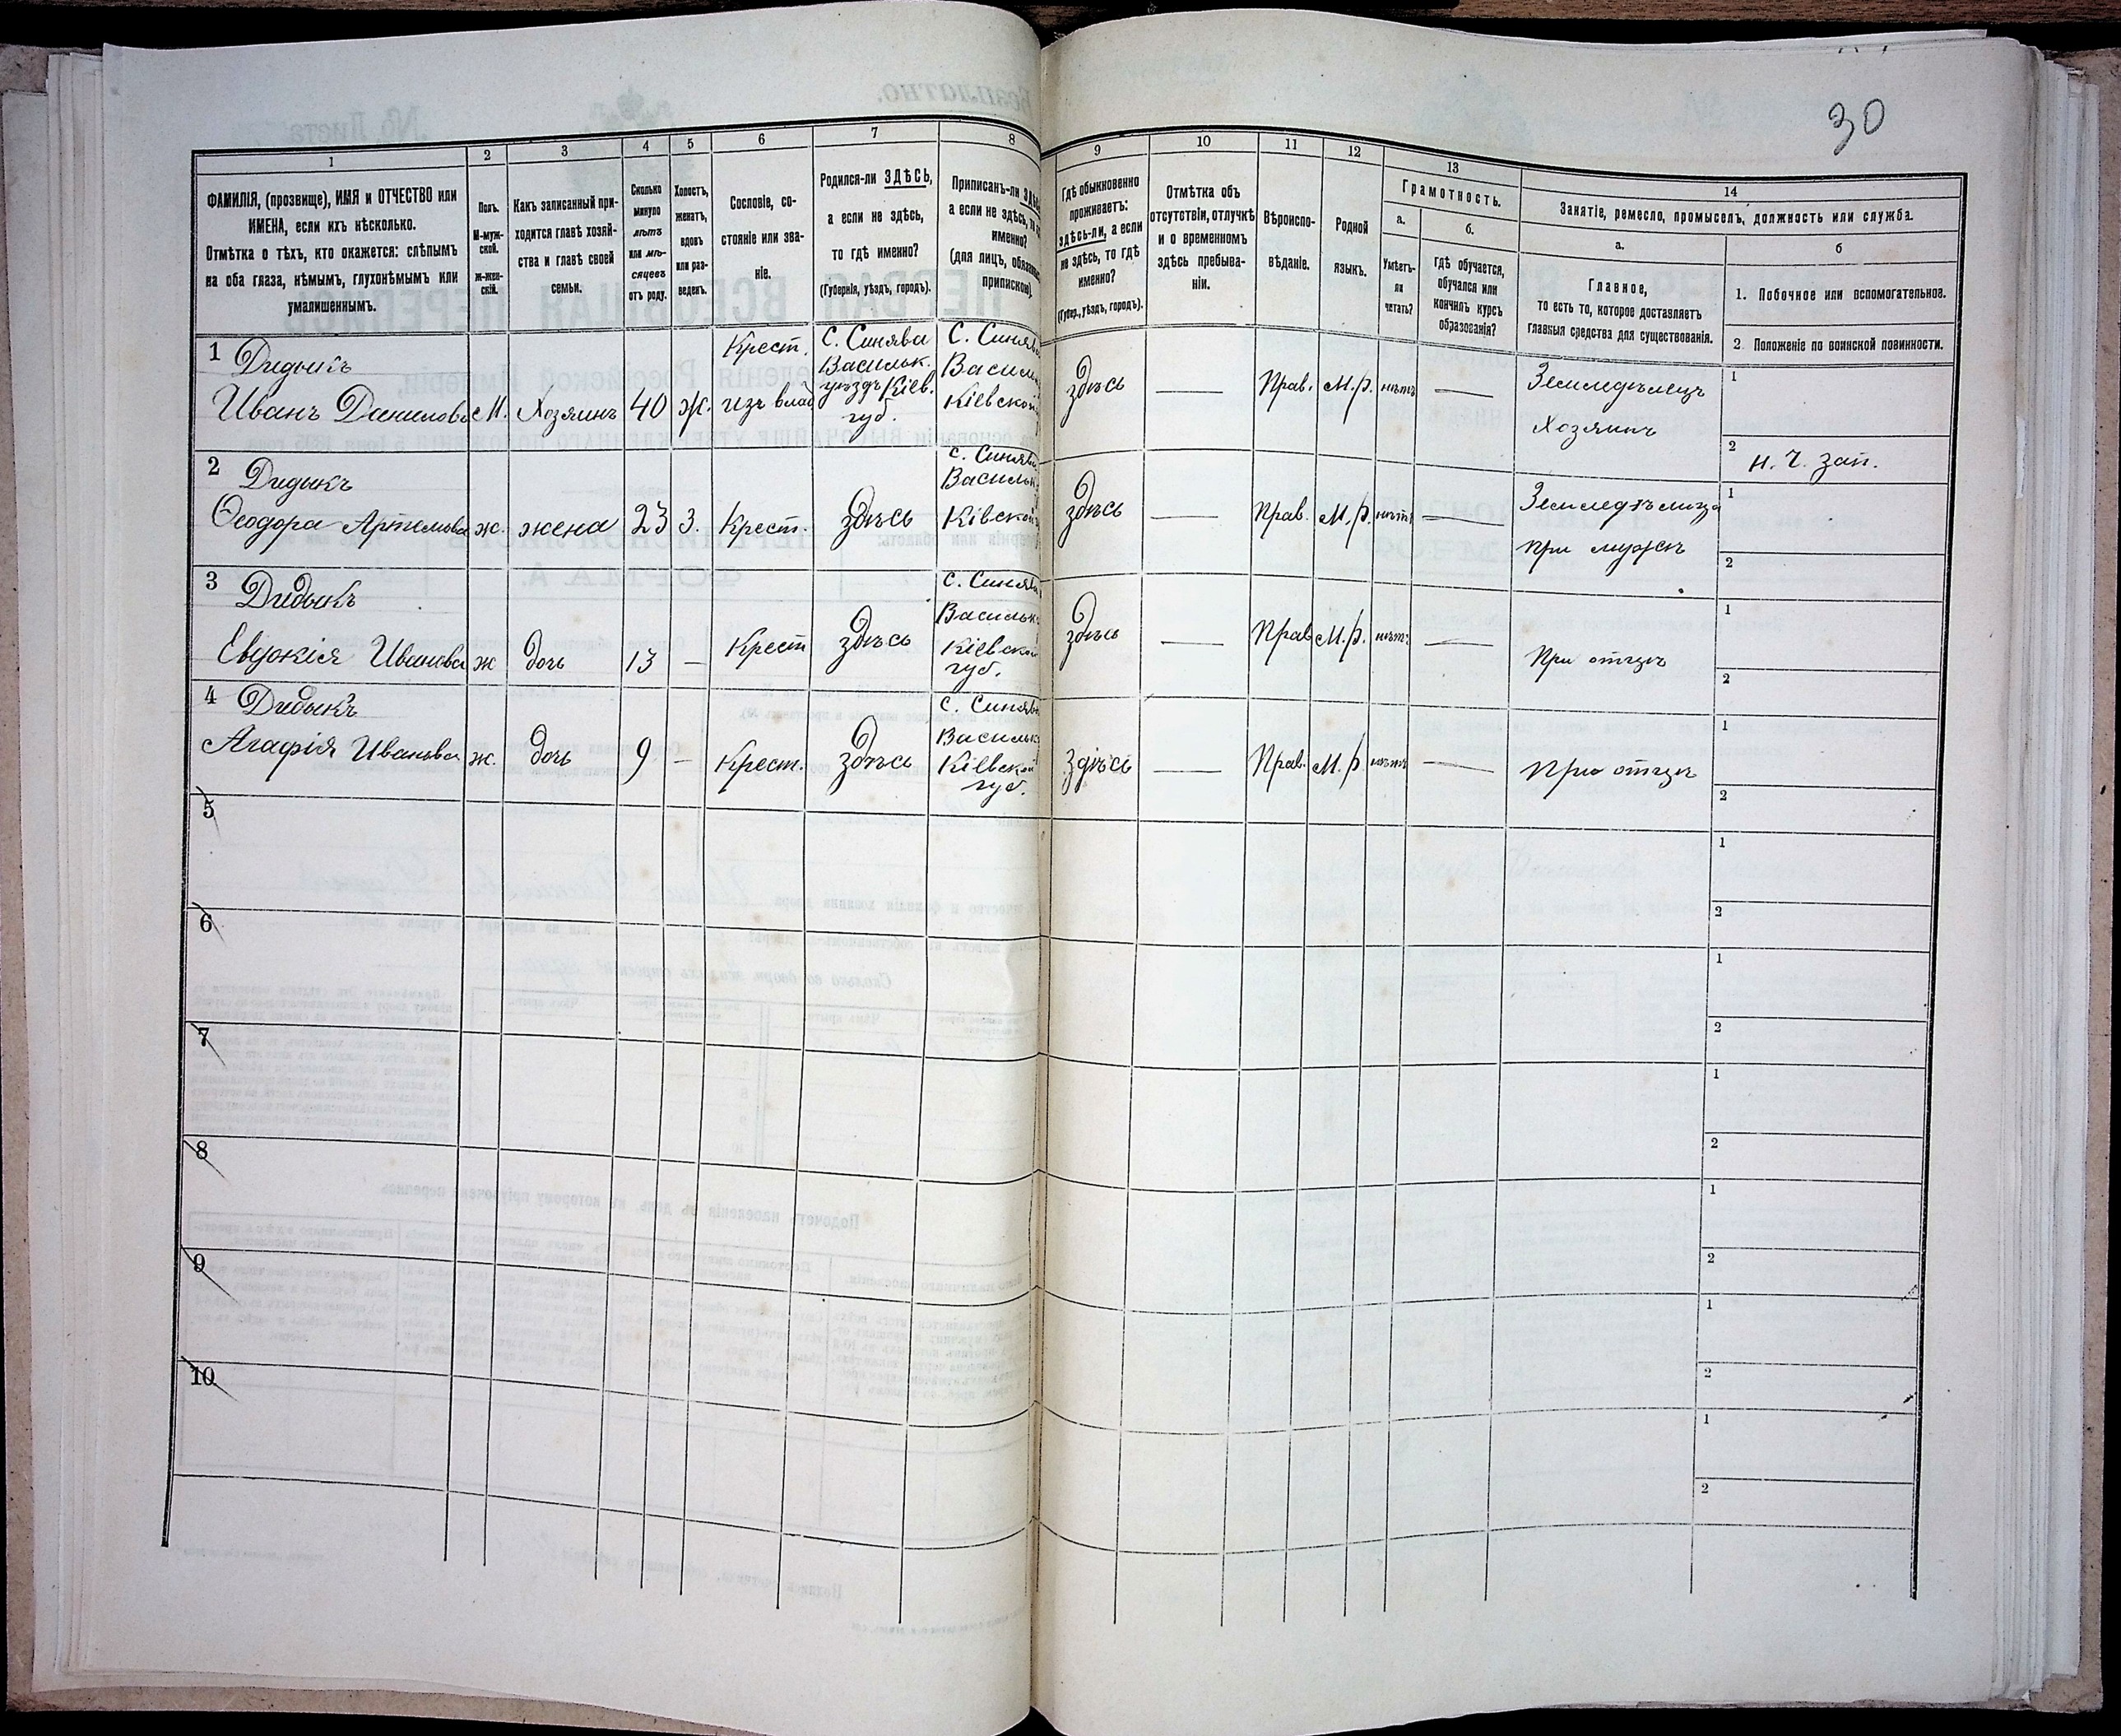 30
1
2
3
4
5
6
7
8
9
10
11
12
13
14
ФАМИЛІЯ, (прозвище), ИМЯ и ОТЧЕСТВО или
ИМЕНА, если ихъ нѣсколько.
Отмѣтка о тѣхъ, кто окажется: слѣпымъ
на оба глаза, нѣмымъ, глухонѣмымъ или
умалишеннымъ.
Полъ.
М-муж-
ской.
ж-жен-
скій.
Какъ записанный при-
ходится главѣ хозяй-
ства и главѣ своей
семьи.
Сколько
минуло
лѣтъ
или мѣ-
сяцевъ
отъ роду.
Холостъ,
женатъ,
вдовъ
или раз-
веденъ.
Сословіе, со-
стояніе или зва-
ніе.
Родился-ли ЗДѢСЬ,
а если не здѣсь,
то гдѣ именно?
(Губернія, уѣздъ, городъ).
Приписанъ-ли
а если не здѣсь,
именно?
(для лицъ,
припискою)
Гдѣ обыкновенно
проживаетъ:
здѣсь-ли, а если
не здѣсь, то гдѣ
именно?
(Губер., уѣздъ, городъ).
Отмѣтка объ
отсутствіи, отлучкѣ
и о временномъ
здѣсь пребыва-
ніи.
Вѣроиспо-
вѣданіе.
Родной
языкъ.
Грамотность.
а.
Умѣетъ-
ли
читать?
б.
гдѣ обучается,
обучался или
кончилъ курсъ
образованія?
Занятіе, ремесло, промыселъ, должность или служба.
а.
Главное,
то есть то, которое доставляетъ
главныя средства для существованія.
б
1. Побочное или вспомогательное.
2. Положеніе по воинской повинности.
1 Дидыкъ
Иванъ Данилов М. Хозяинъ 40 Ж. Крест. изъ влад С. Синява Васильк. уѣздъ Кіев. губ. С. Синява Кіевской здѣсь — Прав. М.р. нѣтъ — Земледѣлецъ Хозяинъ
1
2 н. ч. зап.
2 Дидыкъ
Ѳеодора Артемова ж. жена 23 З. Крест. здѣсь с. Синява здѣсь — Прав. М.р. нѣтъ — при мужѣ
1
2
3 Дидыкъ
Евдокія Иванова ж дочь 13 — Крест здѣсь с. Синява Кіевской губ. здѣсь — Прав М.р. нѣтъ — При отцѣ
1
2
4 Дидыкъ
Агафія Иванова ж. дочь 9 — Крест. здѣсь с. Синява Кіевской губ. Здѣсь — Прав. М.р. нѣтъ — При отцѣ
1
2
5
1
2
6
1
2
7
1
2
8
1
2
9
1
2
10
1
2